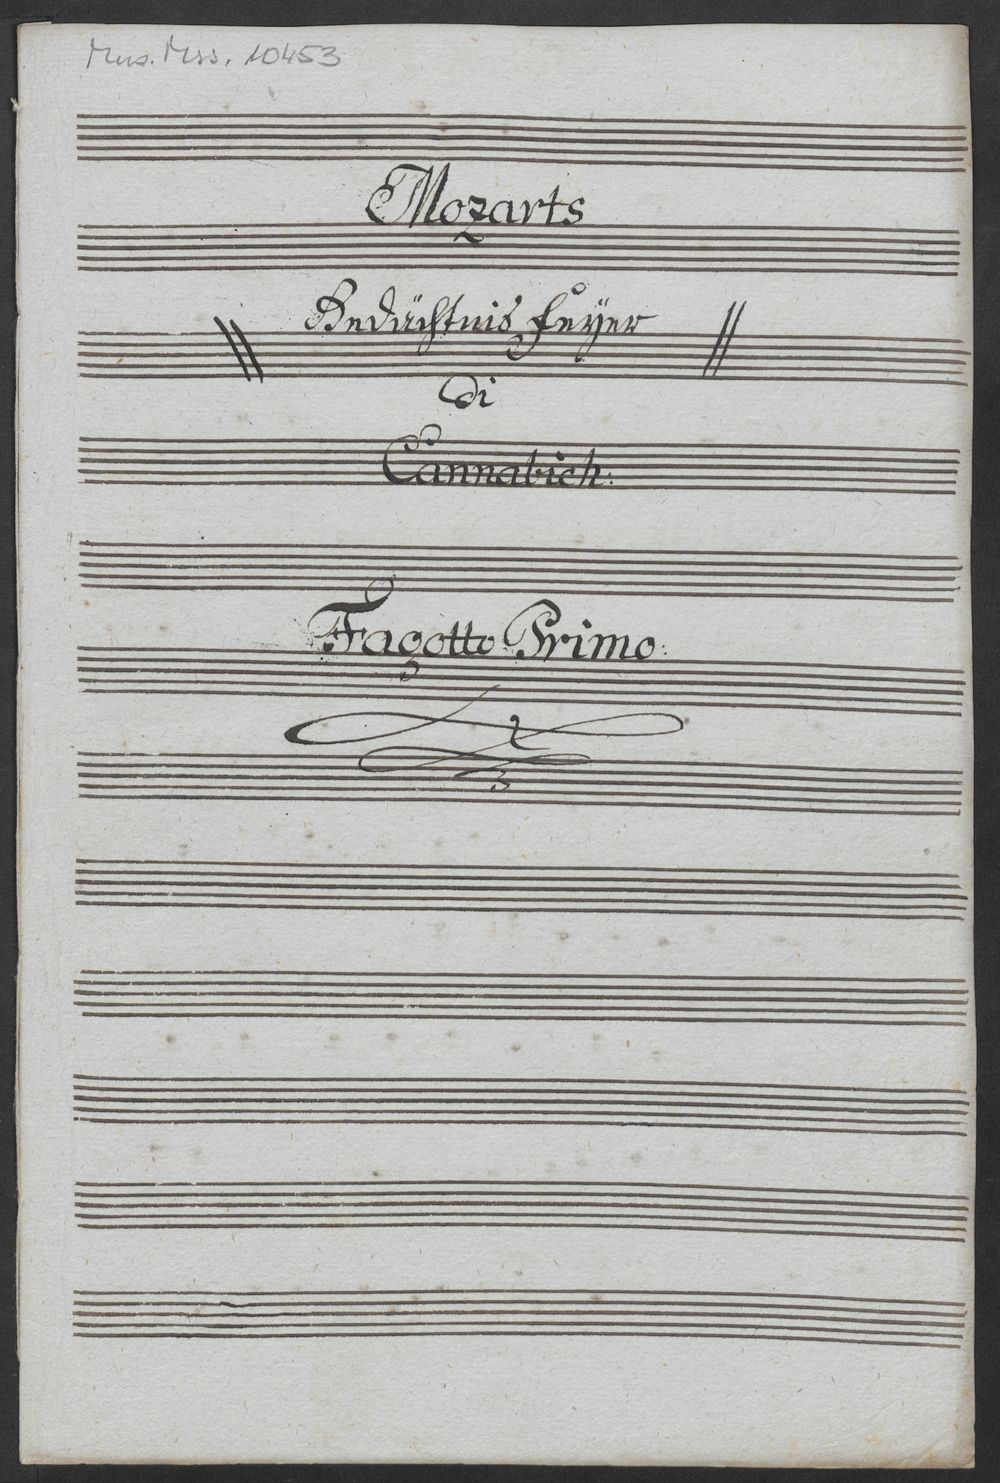 Mus. Mss. 10453
Mozarts
Gedächtnis Feÿer
di
Cannabich:
Fagotto Primo: